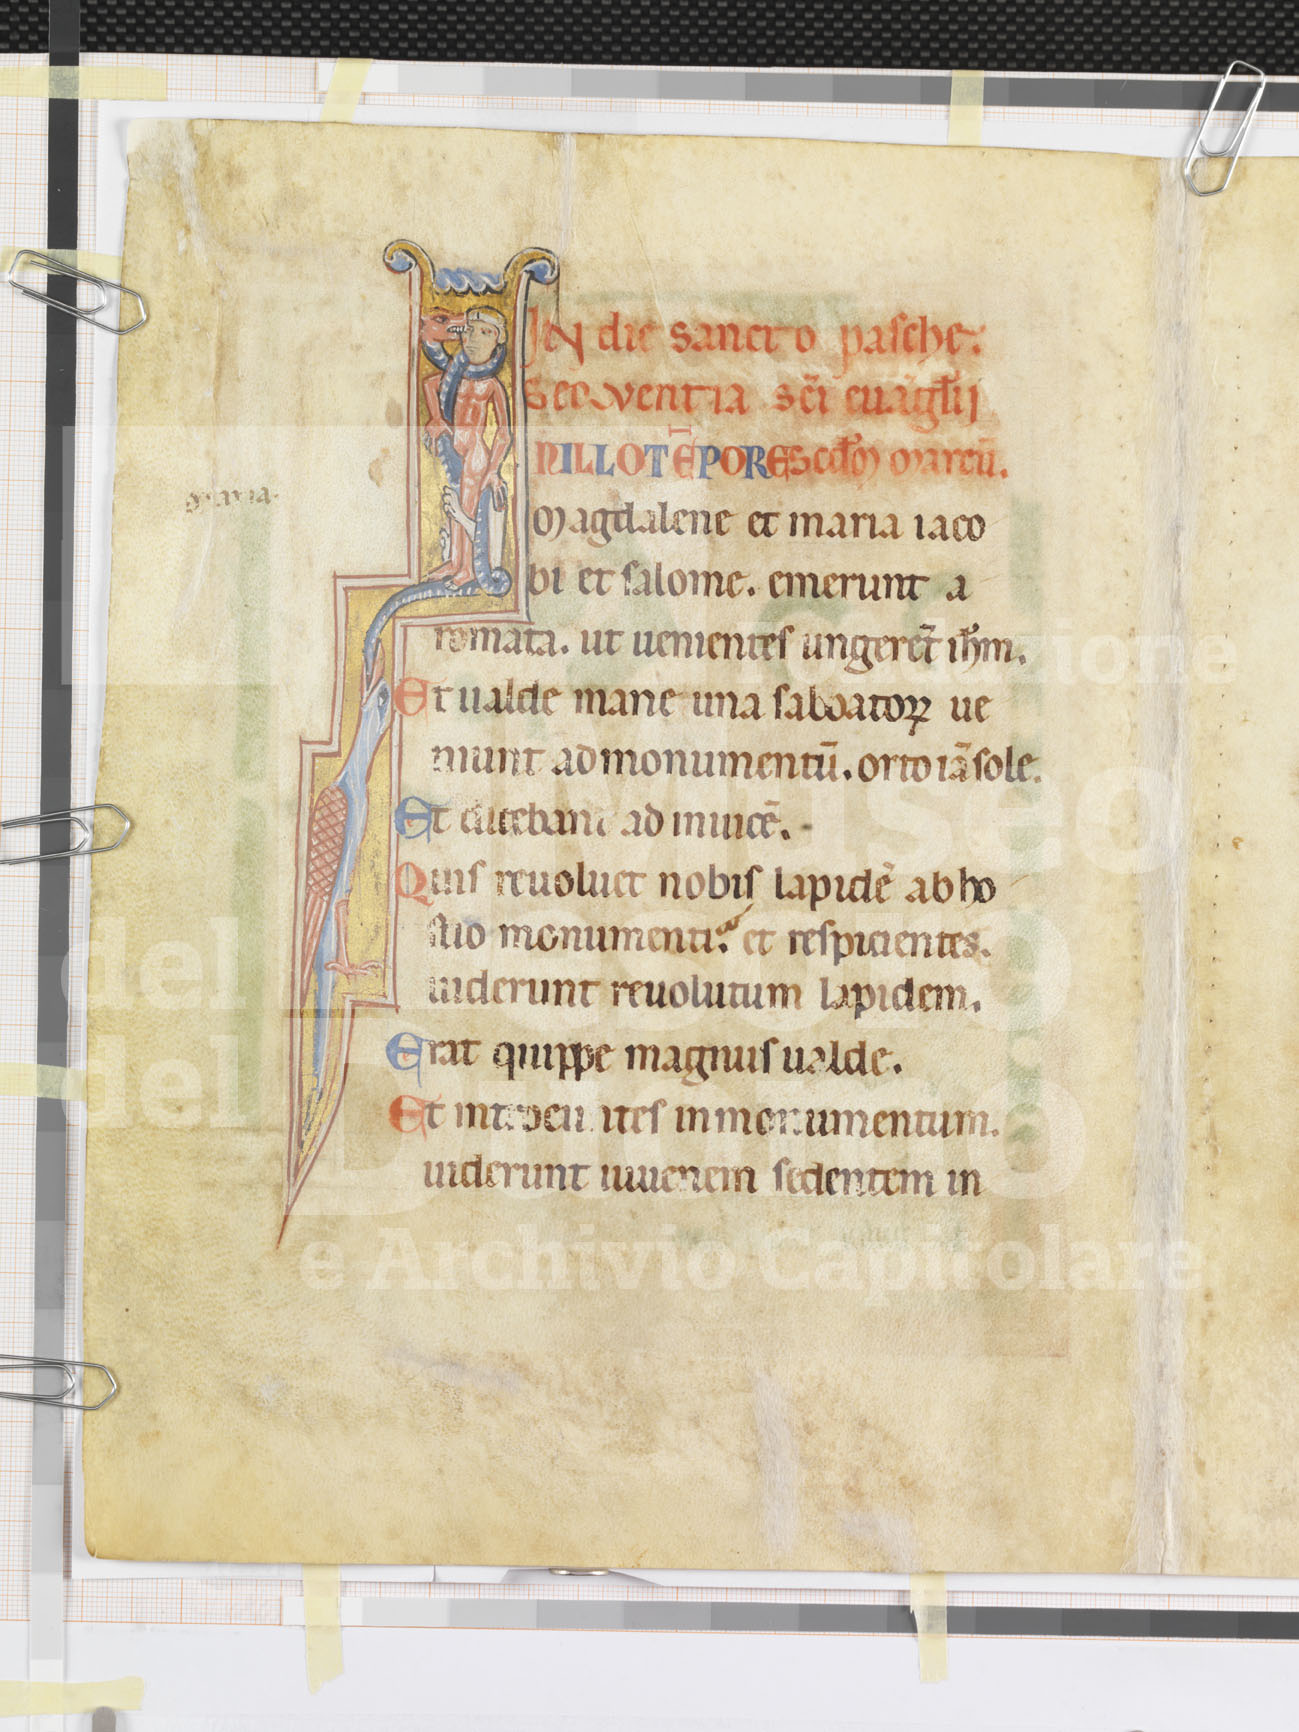 IN die sancto pasche.
Seqventia sc̄i euāgłii
INILLO TĒPORE scd̄m marcū.
maria.
Magdalene et maria iaco
bi et salome. emerunt a
romata. ut uenientes ungerēt ih̄m.
Et ualde mane una sabbatoꝝ ue
niunt ad monumentū. orto iā sole.
Et dicebant ad inuicē.
Quis reuoluet nobis lapidē ab ho
stio monumenti. et respicientes.
uiderunt reuolutum lapidem.
Erat quippe magnus ualde.
Et introeuntes in monumentum.
uiderunt iuuenem sedentem in
Fondazione
Museo
del Tesoro
del Duomo
e Archivio Capitolare